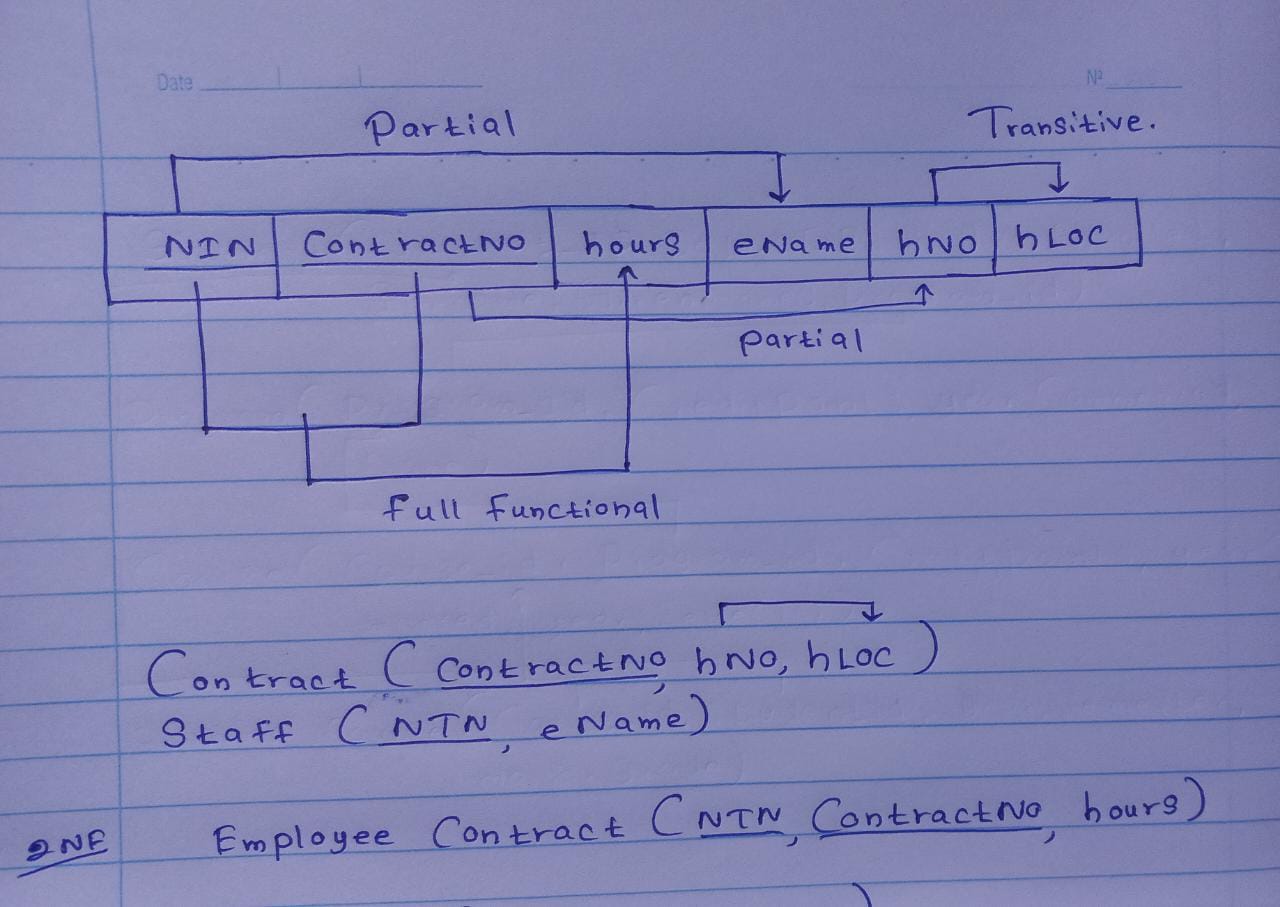 Date Nº
Partial Transitive.
NIN ContractNo hours eName hNo hLoc
Partial
Full Functional
Contract (ContractNo, hNo, hLoc)
Staff (NIN, eName)
2NF Employee Contract (NIN, ContractNo, hours)